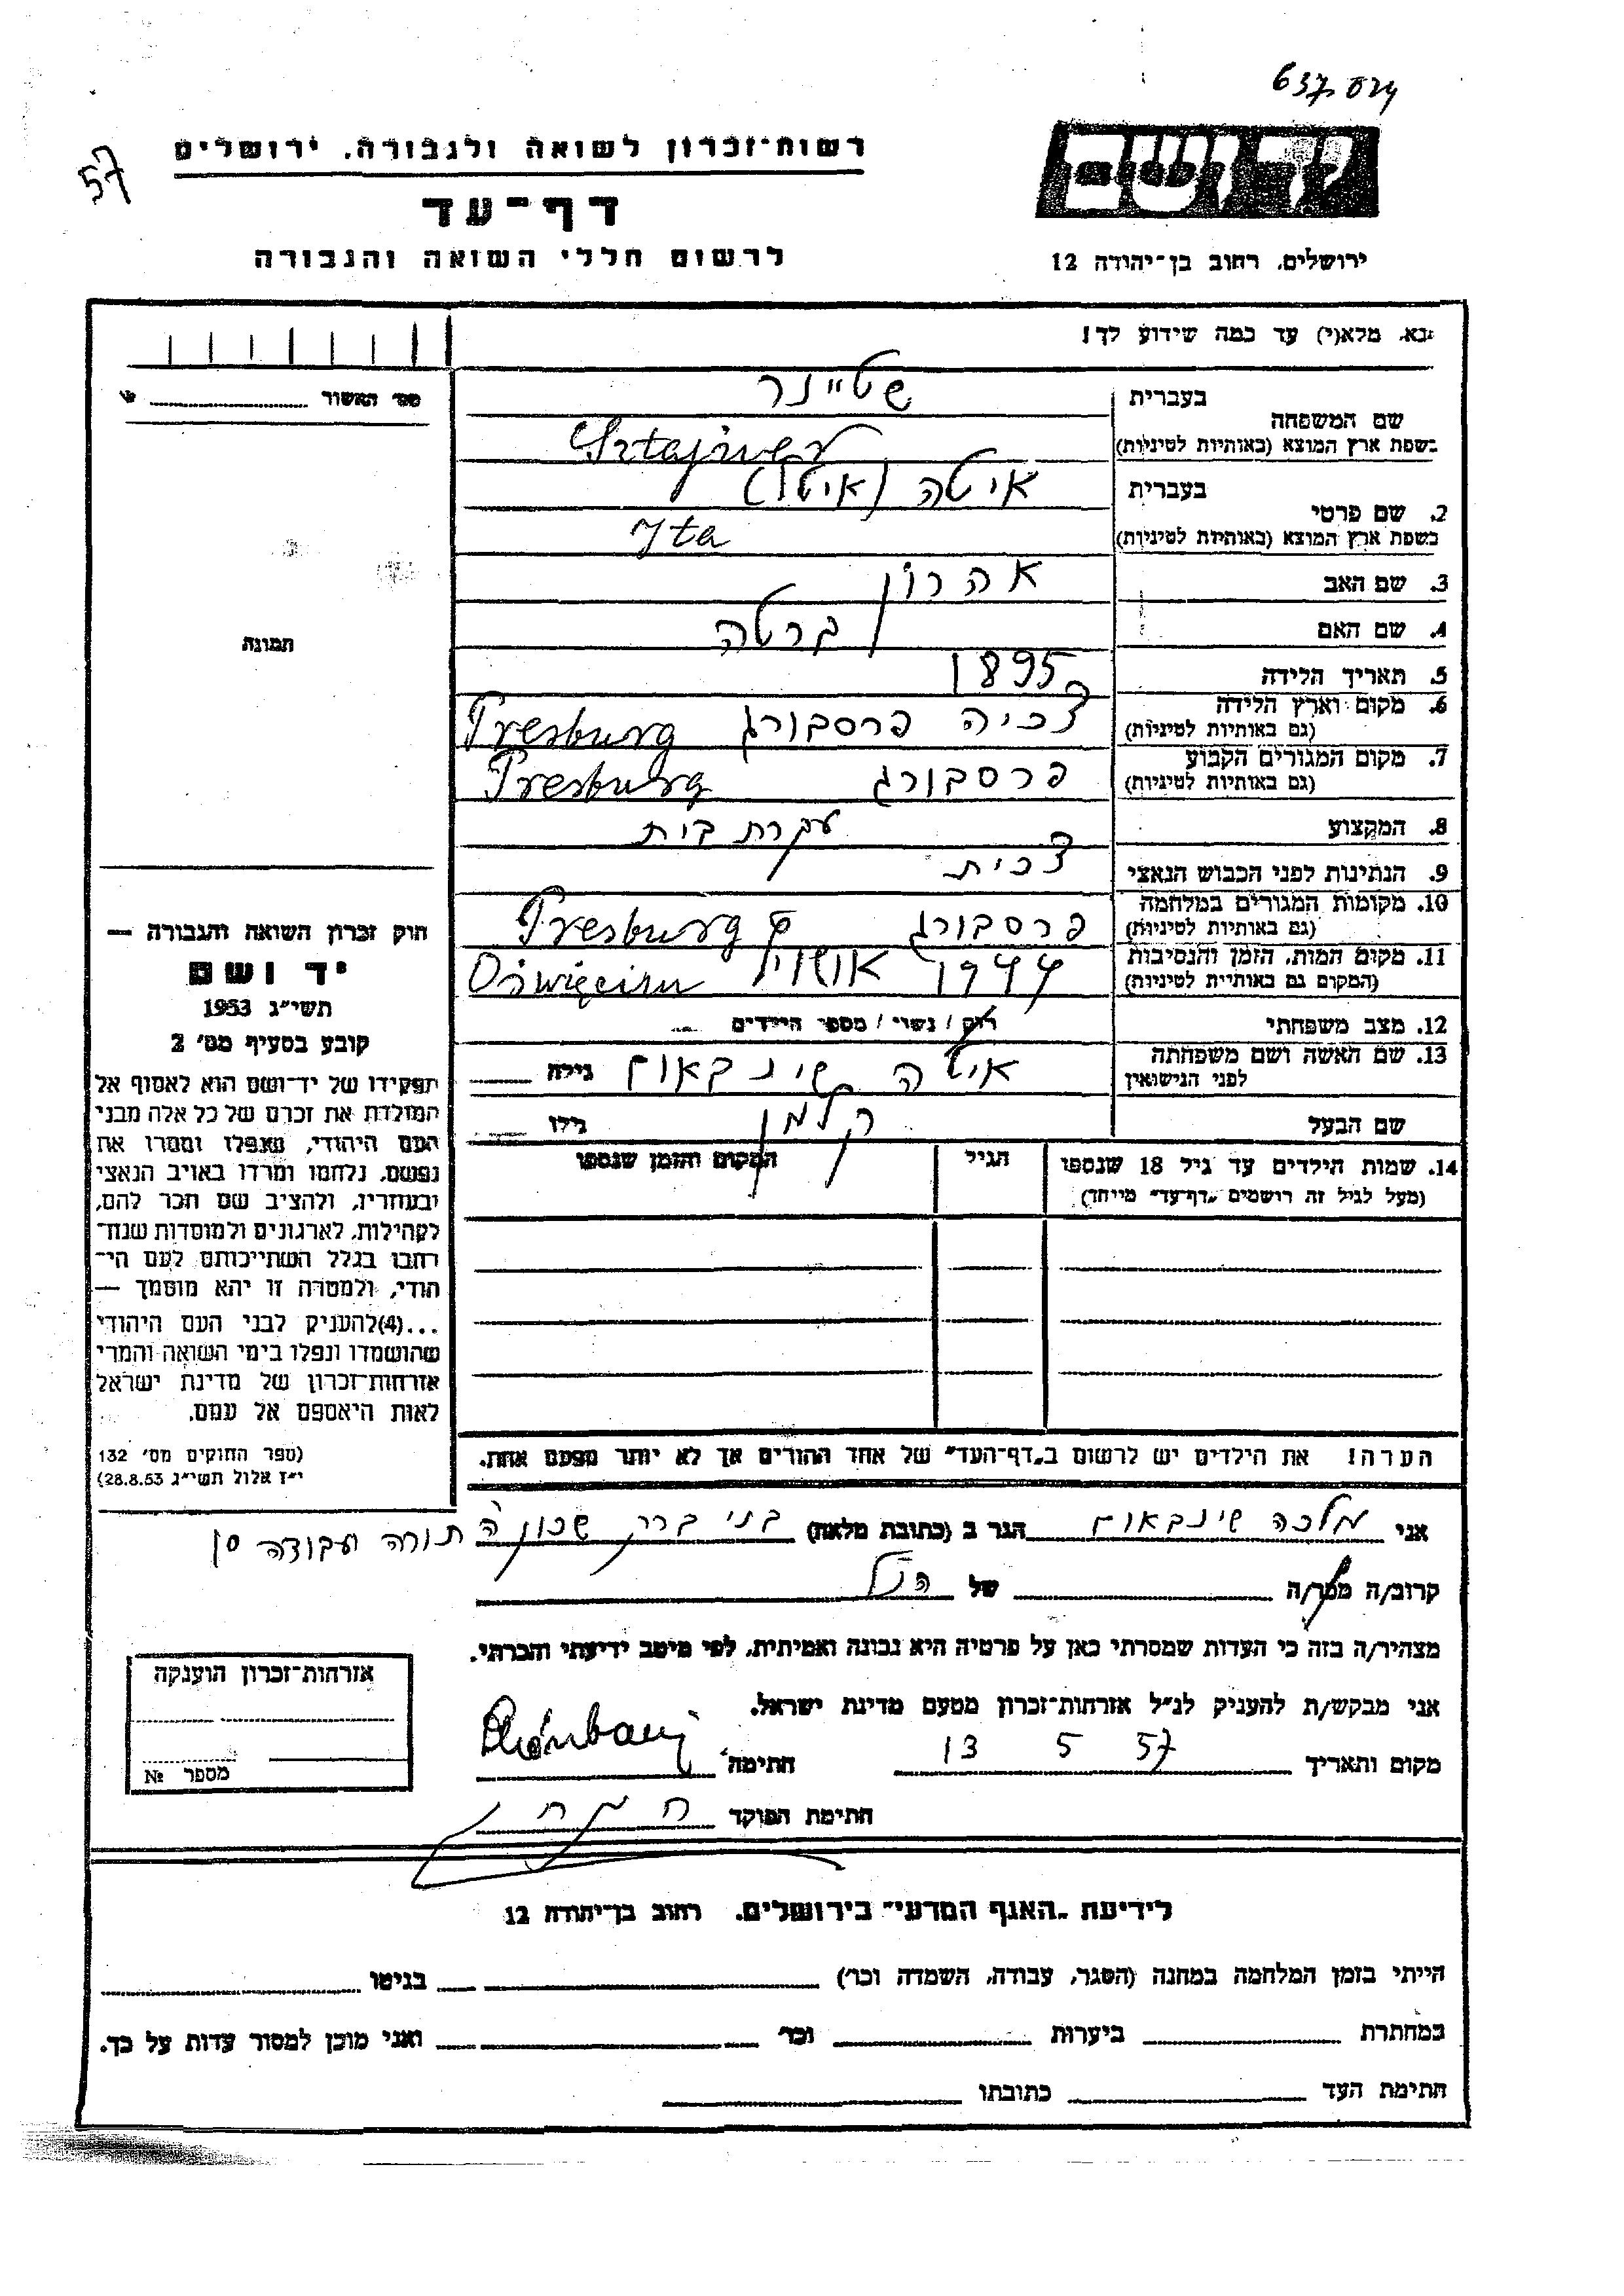 57
רשות־זכרון לשואה ולגבורה, ירושלים
דף־עד
לרשום חללי השואה והגבורה
ירושלים, רחוב בן־יהודה 12
נא מלא(י) עד כמה שידוע לך!
מס' האשור
שם המשפחה
בעברית
שטיינר
בשפת ארץ המוצא (באותיות לטיניות)
Sztajner
2. שם פרטי
בעברית
איטה (איטל)
בשפת ארץ המוצא (באותיות לטיניות)
Jta
3. שם האב
אהרון
4. שם האם
ברטה
5. תאריך הלידה
1895
6. מקום וארץ הלידה
(גם באותיות לטיניות)
צ'כיה פרסבורג Presburg
7. מקום המגורים הקבוע
(גם באותיות לטיניות)
פרסבורג Presburg
8. המקצוע
עקרת בית
9. הנתינות לפני הכבוש הנאצי
צ'כית
10. מקומות המגורים במלחמה
(גם באותיות לטיניות)
פרסבורג Presburg
11. מקום המות, הזמן והנסיבות
(המקום גם באותיות לטיניות)
1944 אושויץ Oświęcim
12. מצב משפחתי
רוק / נשוי / מספר הילדים
13. שם האשה ושם משפחתה
לפני הנישואין
איטה שינבאום
גילה
שם הבעל
קלמן
גילו
14. שמות הילדים עד גיל 18 שנספו
(מעל לגיל זה רושמים „דף־עד” מייחד)
הגיל
המקום והזמן שנספו
הערה! את הילדים יש לרשום ב„דף־העד” של אחד ההורים אך לא יותר מפעם אחת.
תמונה
חוק זכרון השואה והגבורה —
יד ושם
תשי״ג 1953
קובע בסעיף מס' 2
תפקידו של יד־ושם הוא לאסוף אל
המולדת את זכרם של כל אלה מבני
העם היהודי, שנפלו ומסרו את
נפשם, נלחמו ומרדו באויב הנאצי
ובעוזריו, ולהציב שם וזכר להם,
לקהילות, לארגונים ולמוסדות שנח־
רבו בגלל השתייכותם לעם הי־
הודי, ולמטרה זו יהא מוסמך —
...(4)להעניק לבני העם היהודי
שהושמדו ונפלו בימי השואה והמרי
אזרחות־זכרון של מדינת ישראל
לאות היאספם אל עמם.
(ספר החוקים מס' 132
י״ז אלול תשי״ג 28.8.53)
אני מלכה שינבאום הגר ב (כתובת מלאה) בני ברק שכון ה תורה עבודה
קרוב/ה מכר/ה של הנ״ל
מצהיר/ה בזה כי העדות שמסרתי כאן על פרטיה היא נכונה ואמיתית, לפי מיטב ידיעתי והכרתי.
אני מבקש/ת להעניק לנ״ל אזרחות־זכרון מטעם מדינת ישראל.
מקום ותאריך 13 5 57 חתימה
חתימת הפוקד
אזרחות־זכרון הוענקה
מספר №
לידיעת „האגף המדעי” בירושלים, רחוב בן־יהודה 12
הייתי בזמן המלחמה במחנה (הסגר, עבודה, השמדה וכר') בגיטו
במחתרת ביערות וכר' ואני מוכן למסור עדות על כך.
חתימת העד כתובתו